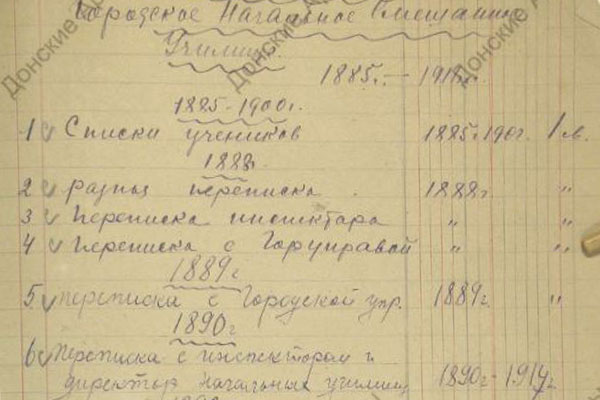 Городское Начальное Смешанное
Училище.
1885г. — 1914г.
1885-1900г.
1 Списки учеников 1885г. 1901. 1 св.
1888г.
2 разная переписка. 1888г. "
3 Переписка инспектара " "
4 Переписка с Горуправой " "
1889г
5. переписка с Городской упр. 1889г. "
1890г
6 Переписка с инспектором и
директор начальных училищ 1890г-1914г.
Донские
Донские